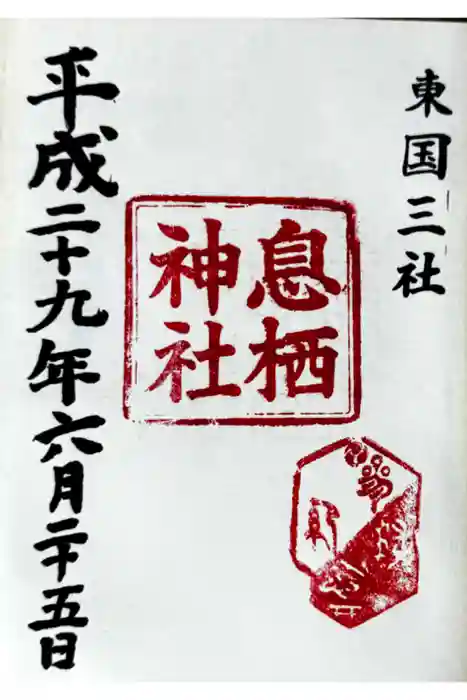 東国三社
息栖
神社
平成二十九年六月二十五日